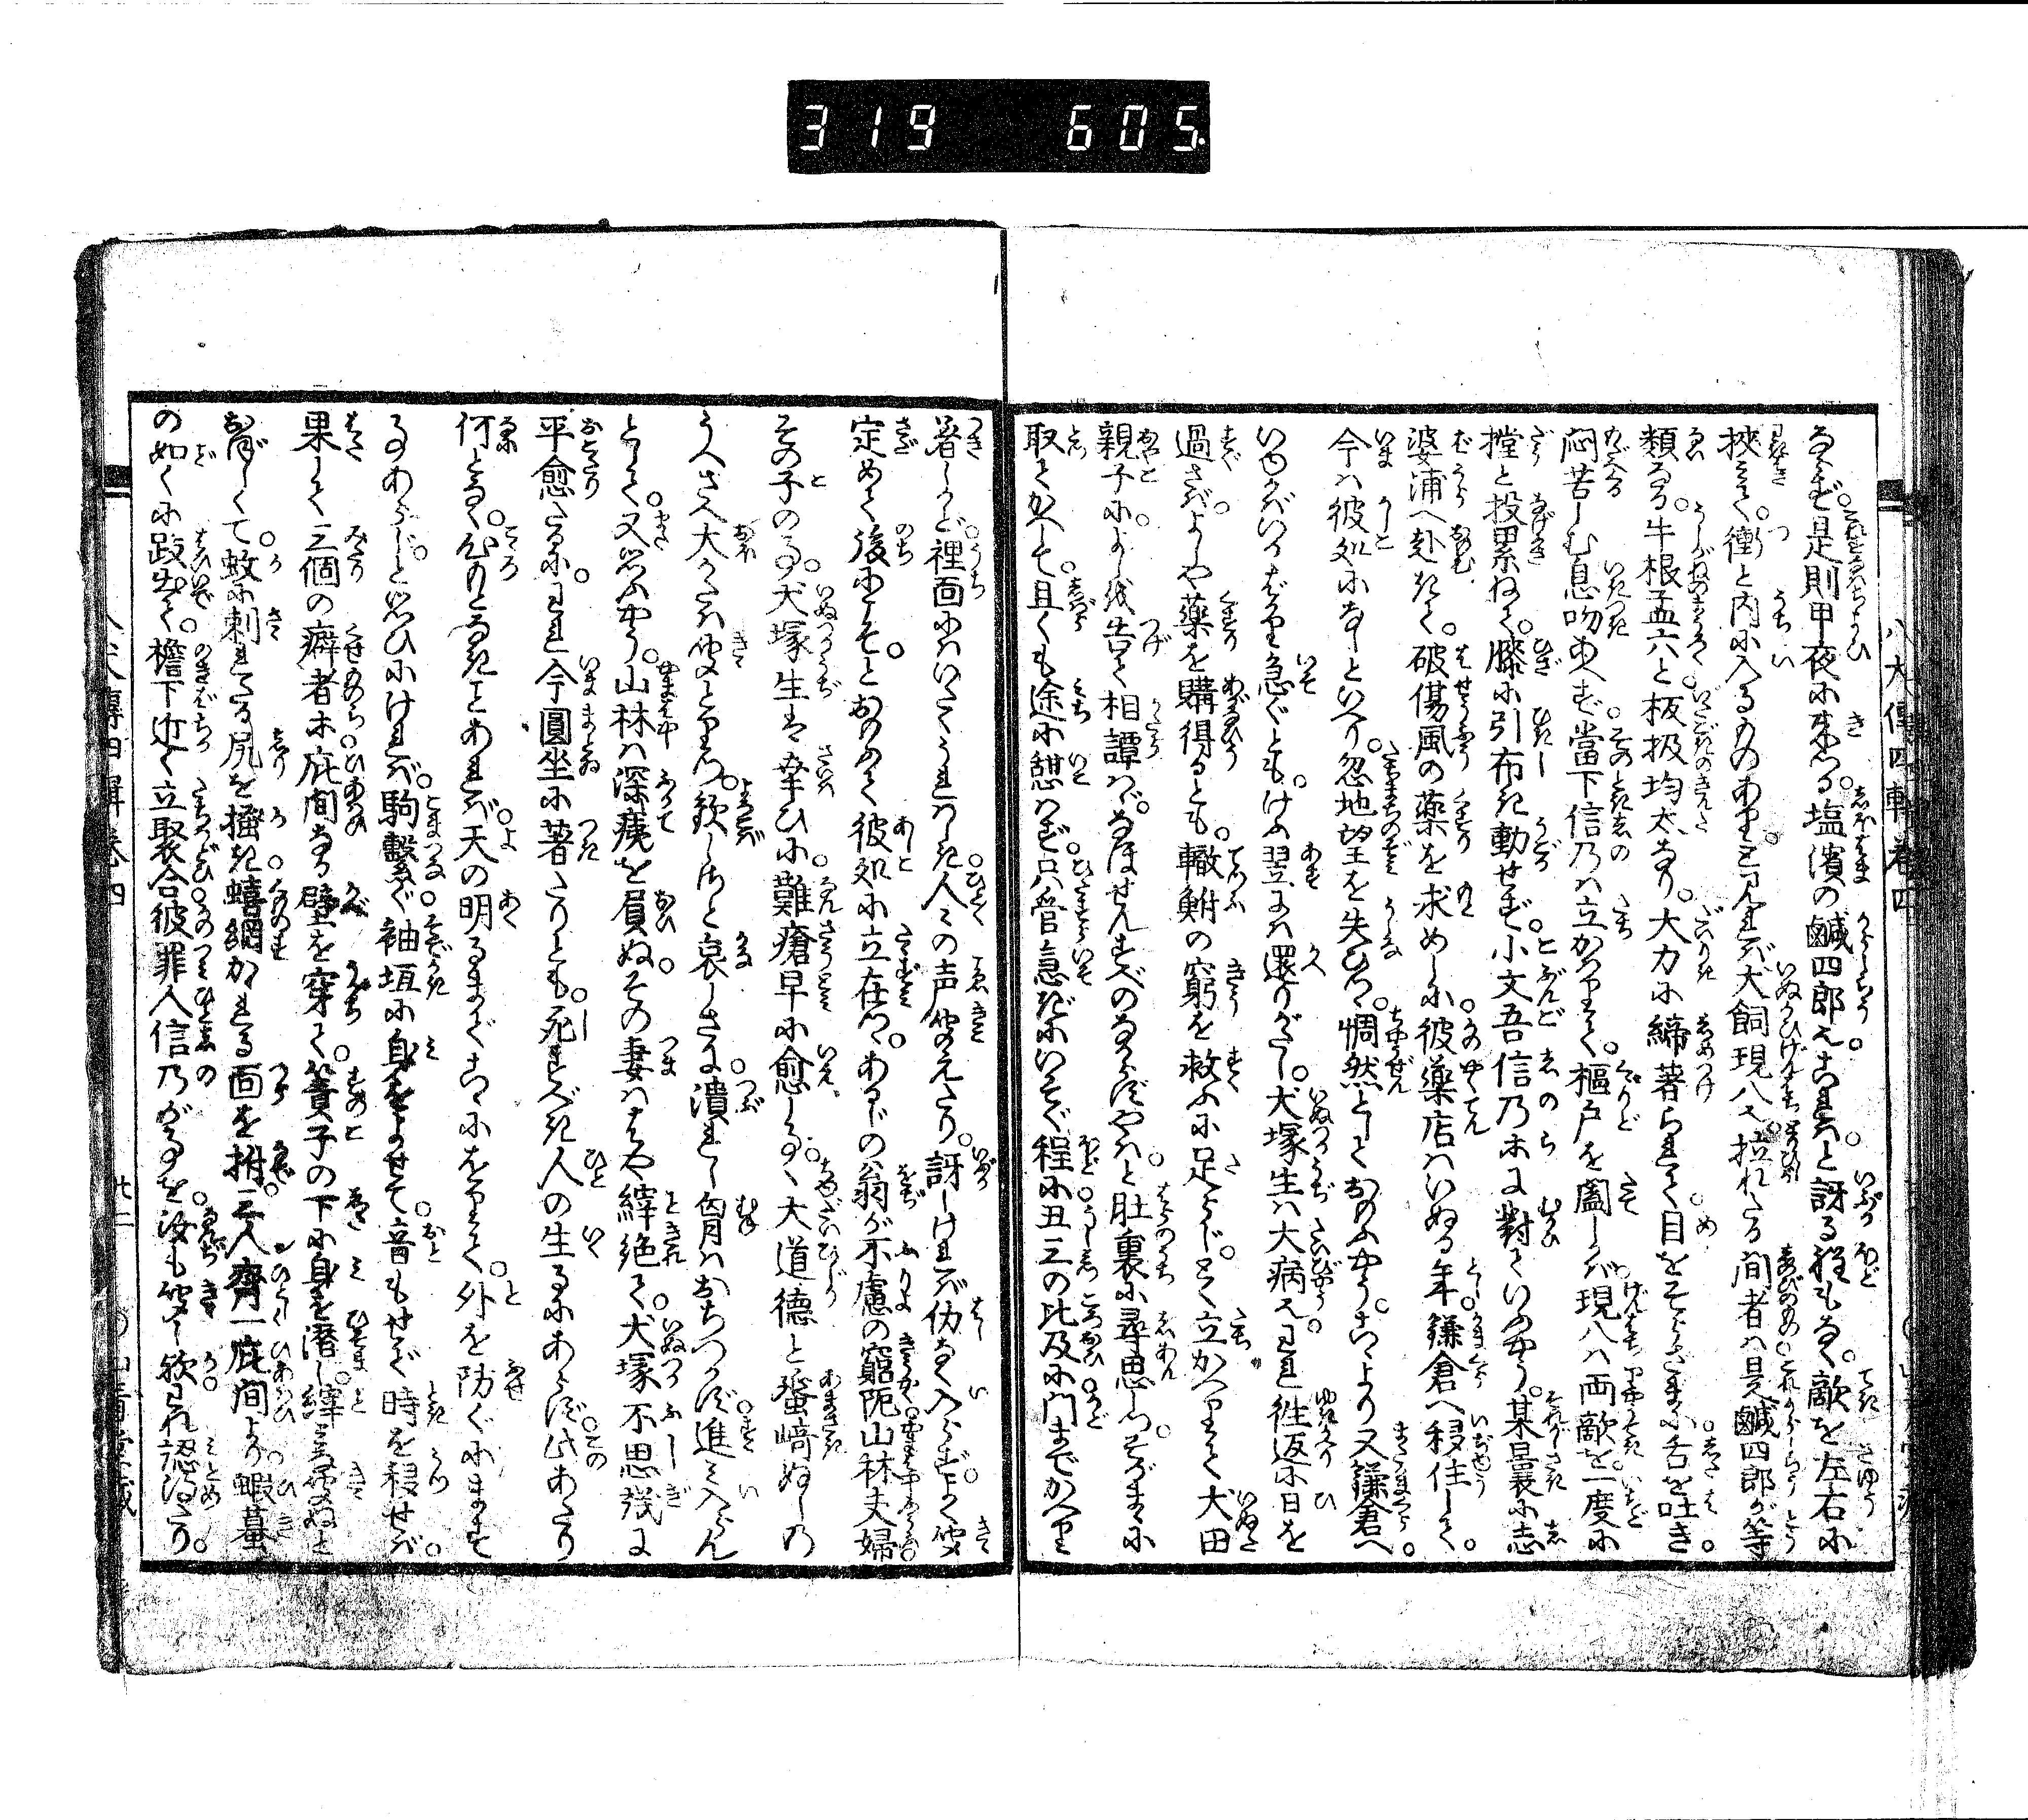 319 605
八犬傳四輯卷四
なまぞ。是則甲夜に來つる。塩濱の鹹四郎也。こはいかにと訝る程もなく。敵を左右に
挾みて。衝と内に入るものあり。と見れば犬飼現八也。拉れたる間者は是鹹四郎が等
類なる。牛根孟六と板扱均太なり。大力に締著られて。目をそらさまに舌を吐き。
悶苦しむ息吻あへず。當下信乃は立かはりて。樞戸を闔しかば。現八は両敵を一度に
摚と投累ねて。膝に引布き動せず。小文吾信乃ホに對ていふやう。某曩に志
婆浦へ赴きて。破傷風の薬を求めしに。彼藥店はいぬる年。鎌倉へ移住して。
今は彼処になしといへり。忽地望を失ひつ。惆然としておのふやう。こゝより又鎌倉へ。
いゆかばいかばかり急ぐとも。けふ翌には還りがたし。犬塚生は大病也。われ徃返に日を
過さば。よしや藥を購得るとも。轍鮒の窮を救ふに足らじ。とく立かへりて犬田
親子に。よしを告て相譚はゞ。なほせんすべのなからずやはと肚裏に尋思しつ。そがまゝに
取てかへして。且くも途に憇はず。只管急ぎにいそぐ程に丑三の比及に門までかへり
著しかど。裡面にはいたくうれはしき人々の声聞えたり。訝しければ伋なく入らず。よく聞
定めて後にこそとおもふて彼処に立在つ。あるじの翁が不慮の窮阨山林夫婦
その子の事。犬塚生は幸ひに。難瘡早に愈し事。大道德と蜑﨑ぬしの
うへさへ大かたは聞とりつ。歓しさと哀しさに。潰れし胷はおちつかず。進み入らん
として。又思ふやう。山林は深痍を負ぬ。その妻ははや縡絶て。犬塚不思議に
平愈たるに。われ今圓坐に著たりとも。死すべき人の生るにあらず。此あたり
何となく。心もとなきことあれば。天の明るまでこゝにをりて。外を防ぐにます
ことあらじ。と思ひにければ。駒繫ぐ袖垣に身をよせて。音もせで時を移せば。
果して三個の癖者ホ。庇間なる壁を穿て。簀子の下に身を潜し。縡を聞ぬと
おぼしくて。蚊に刺れたる尻を搔き。蟢網かゝれる面を拊。三人齊一庇間より。蝦蟇
の如くに跂出て。檐下近く立聚合。彼罪人信乃が事を。汝も聞し欤。われ認得たり。
八犬傳四輯卷四
廿二
山青堂藏